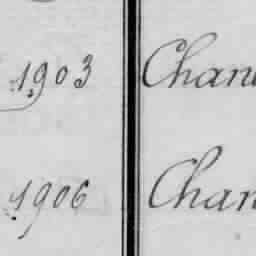 1903 Chan
1906 Chan